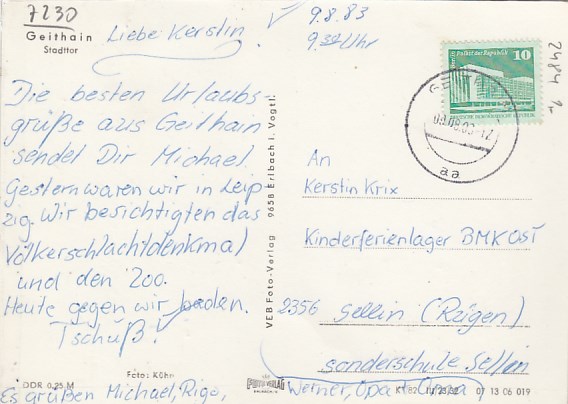 7230
Geithain
Stadttor
Liebe Kerstin!
9.8.83
9.30 Uhr
Die besten Urlaubs-
grüße aus Geithain
sendet Dir Michael.
Gestern waren wir in Leip-
zig. Wir besichtigten das
Völkerschlachtdenkmal
und den Zoo.
Heute gegen wir baden.
Tschüß!
DDR 0,25 M
Foto: Kühn
Es grüßen Michael, Rigo,
Werner, Opa + Oma
VEB Foto-Verlag 9658 Erlbach i. Vogtl.
10
Palast der Republik
DEUTSCHE DEMOKRATISCHE REPUBLIK
09.08.83-12
aa
2484 9-
An
Kerstin Krix
Kinderferienlager BMK OST
2356 Sellin (Rügen)
Sonderschule Sellin
07 13 06 019